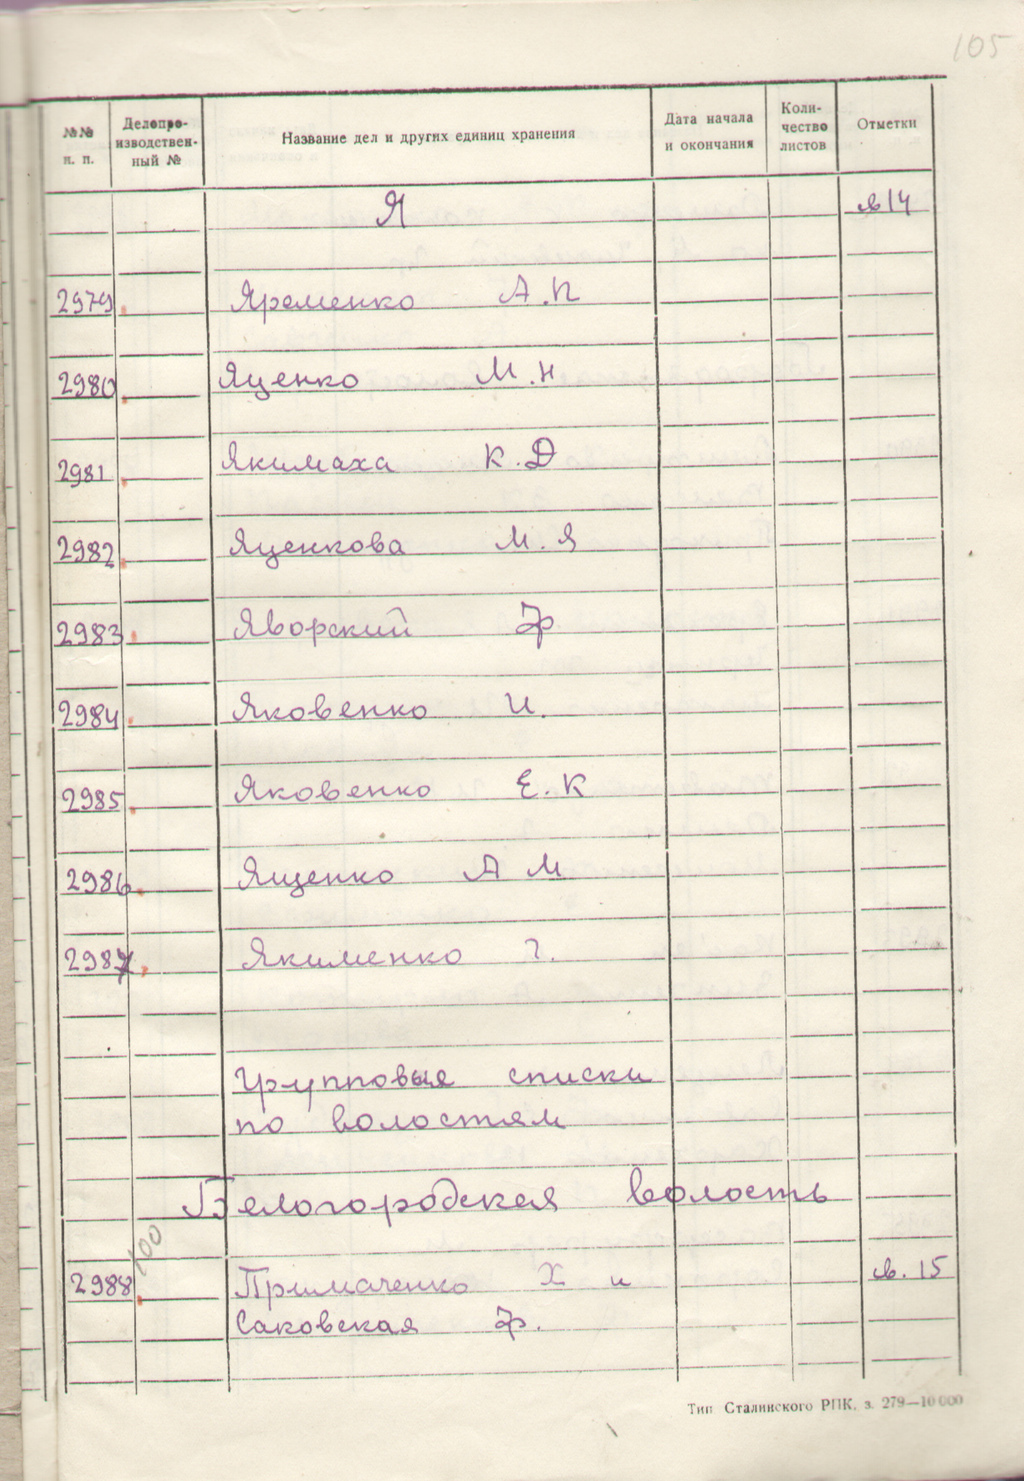 105
№№ п. п. Делопроизводственный № Название дел и других единиц хранения Дата начала и окончания Количество листов Отметки
Я в 14
2979 Яременко А.П
2980 Яценко М.Н
2981 Якимаха К.Д
2982 Яценкова М.Я
2983 Яворский Ф
2984 Яковенко И.
2985 Яковенко Е.К
2986 Ященко А М
2987 Якименко Г.
Групповые списки
по волостям
Белогородская волость
100
2988 Примаченко Х и в. 15
Саковская Ф.
Тип Сталинского РПК, з. 279—10 000